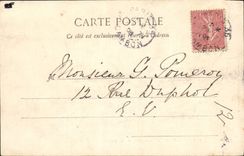 CARTE POSTALE
Ce côté est exclusivement réservé à l'adresse
Monsieur G. Pomeroy
12 Rue Duphot
E. V.